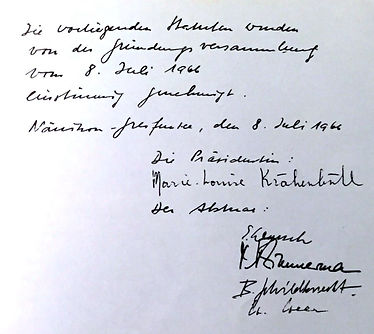 Die vorliegenden Statuten wurden
von der Gründungsversammlung
vom 8. Juli 1966
einstimmig genehmigt.
Nänikon-Greifensee, den 8. Juli 1966
Die Präsidentin:
Marie-Louise Krähenbühl
Der Aktuar:
B. Schildknecht